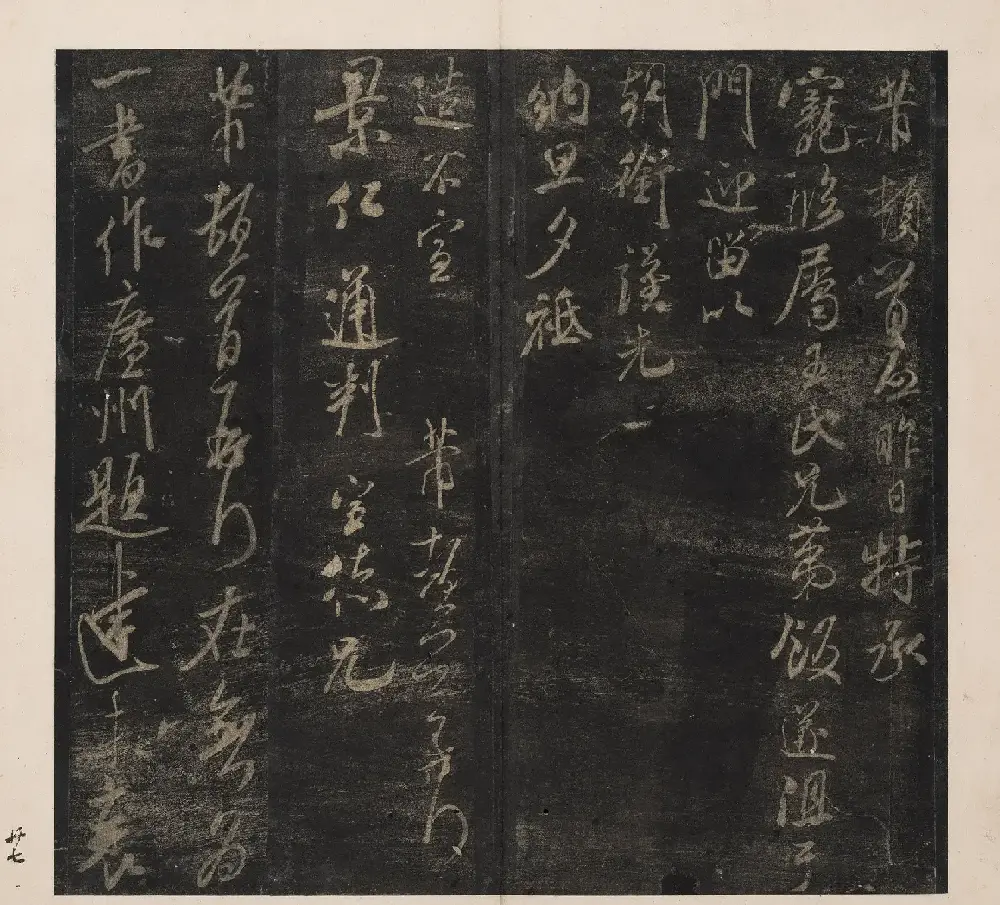 芾頓首啟昨日特承
寵臨屬五氏兄弟飯遂沮
門迎留以
朝銜謹先
納旦夕祗
造不宣 芾頓首再
景仁通判宣德兄
芾頓首再 在無為
一書作廣州題達十
卅七